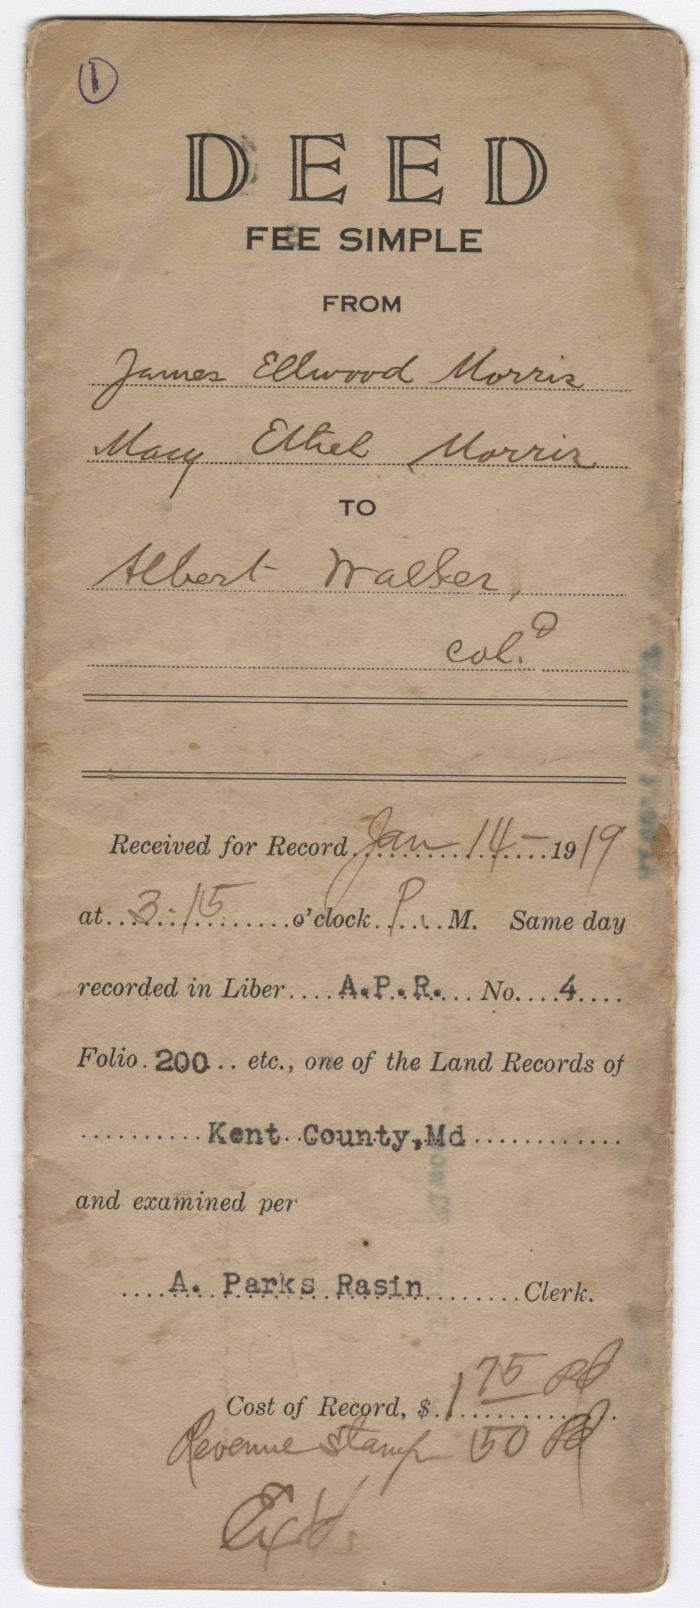 1
DEED
FEE SIMPLE
FROM
James Ellwood Morris
Mary Ethel Morris
TO
Albert Walker,
col.d
Received for Record Jan 14 - 1919
at 3-15 o'clock P. M. Same day
recorded in Liber A.P.R. No. 4
Folio 200 etc., one of the Land Records of
Kent County, Md
and examined per
A. Parks Rasin Clerk.
Cost of Record, $ 1 75 Pd
Revenue Stamp 50 Pd
Exd.